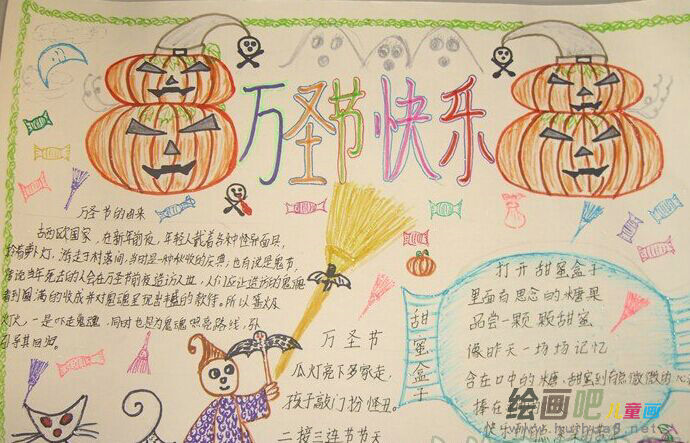 万圣节快乐
万圣节的由来
古西欧国家,在新年前夜,年轻人戴着各种怪异面具,
拎着萝卜灯,游走于村落间,当时是一种秋收的庆典;也有说是鬼节,
传说当年死去的人会在万圣节前夜造访人世,人们应让造访的鬼魂
看到圆满的收成并对鬼魂呈现丰盛的款待。所以篝火及
灯火,一是吓走鬼魂,同时也是为鬼魂照亮路线,引
导其回归。
万圣节
瓜灯亮下多家走,
孩子敲门扮怪丑。
二接三连节节天
甜蜜盒子
打开甜蜜盒子
里面有思念的糖果
品尝一颗颗甜蜜
像昨天一场场记忆
含在口中的糖,甜蜜到有点微微的
捧在
绘画吧儿童画
www.huihua8.net